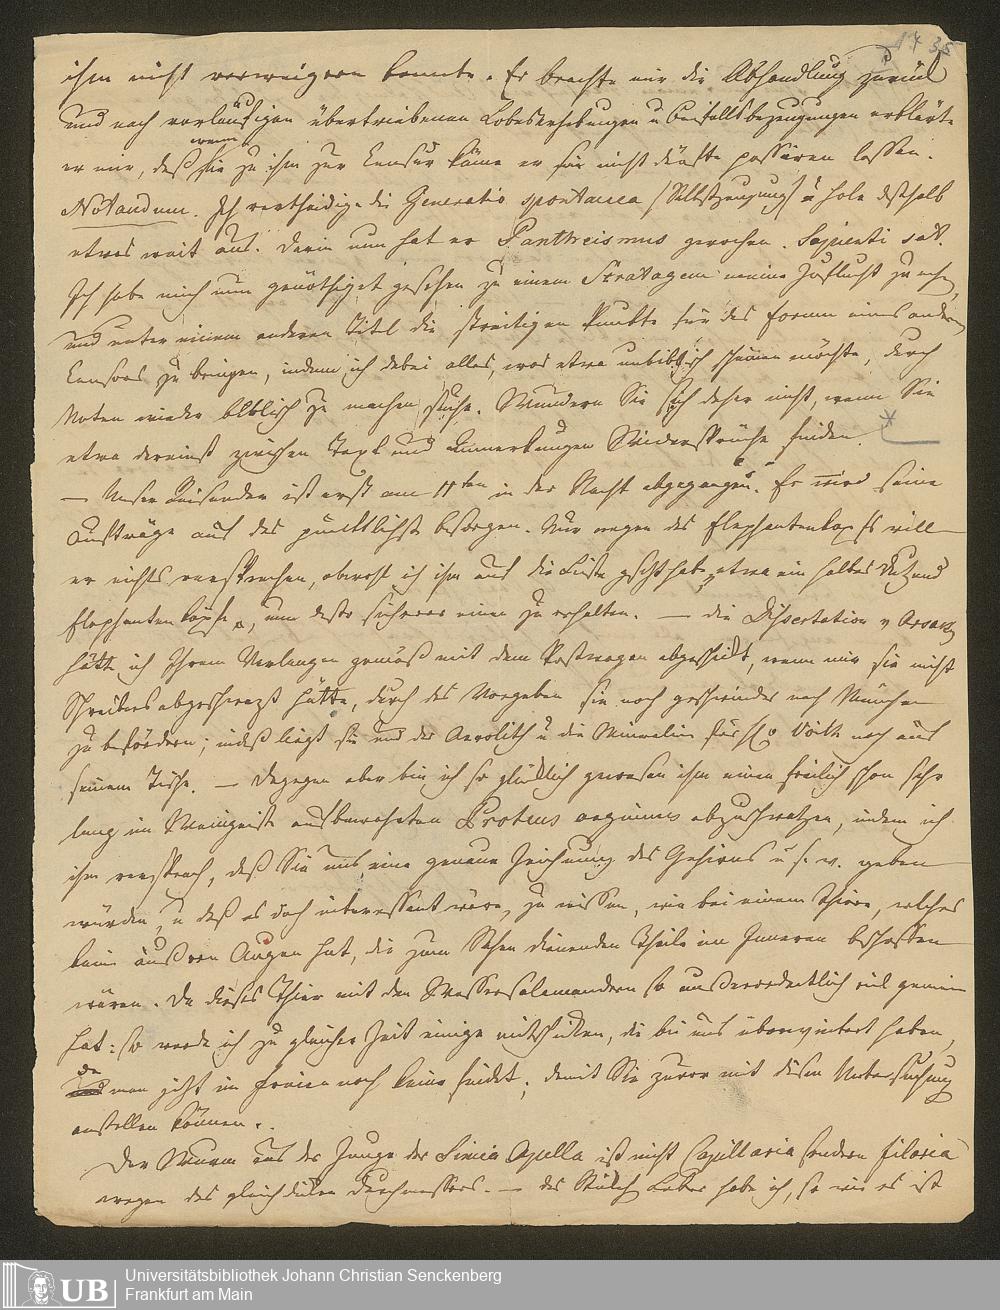 17 35
ihm nicht verweigern konnte. Er brachte mir die Abhandlung zurück
und nach vorläufigen übertriebenen Lobeserhebungen u Beifallsbezeugungen erklärte
er mir, daß wenn sie zu ihm zur Censur käme er sie nicht dürfte passiren lassen.
Notandum. Ich vertheidige die Generatio spontanea (Selbstzeugung) u hole deßhalb
etwas weit aus. Darin nun hat er Pantheismus gerochen. Sapienti sat.
Ich habe mich nun genöthiget gesehen zu einem Stratagem meine Zuflucht zu nehmen,
und unter einem anderen Titel die streitigen Punkte für das Forum eines andern
Censors zu bringen, indem ich dabei alles, was etwa unbiblisch scheinen möchte, durch
Noten wieder biblisch zu machen suche. Wundern Sie sich daher nicht, wenn Sie
etwa dereinst zwischen Text und Anmerkungen Widersprüche finden.
— Unser Reisender ist erst am 11ten in der Nacht abgegangen. Er wird seine
Aufträge auf das pünktlichste besorgen. Nur wegen des Elephantenkopfs will
er nichts versprechen, obwohl ich ihm auf die Liste gesetzt habe, etwa ein halbes Dutzend
Elephanten köpfe, um desto sicherer einen zu erhalten. — die Dissertation v
hätte ich Ihrem Verlangen gemäß mit dem Postwagen abgeschickt, wenn mir sie nicht
Schreibers abgeschwazt hätte, durch das Vorgeben sie noch geschwinder nach München
zu befördern; indeß liegt sie und der Aerolith u die Mineralien für noch auf
seinem Tische. — Dagegen aber bin ich so glücklich gewesen ihm einen freilich schon sehr
lang im Weingeist aufbewahrten Proteus anguinus abzuschwatzen, indem ich
ihm versprach, daß Sie uns eine genaue Zeichnung des Gehirns u s. w. geben
würden, u daß es doch interessant wäre, zu wissen, wie bei einem Thiere, welches
keine äußeren Augen hat, die zum Sehen dienenden Theile im Inneren beschaffen
wären. Da dieses Thier mit den Wassersalamandern so außerordentlich viel gemein
hat: so werde ich zu gleicher Zeit einige mitschicken, die bei uns überwintert haben,
da man jetzt im Freien noch keine findet; damit Sie zuvor mit diesen Untersuchung
anstellen können.
Der Wurm aus der Zunge der Simia Apella ist nicht Capillaria sondern Filaria
wegen des gleich dicken Durchmessers. — das Leber habe ich, so wie es ist
UB
Universitätsbibliothek Johann Christian Senckenberg
Frankfurt am Main